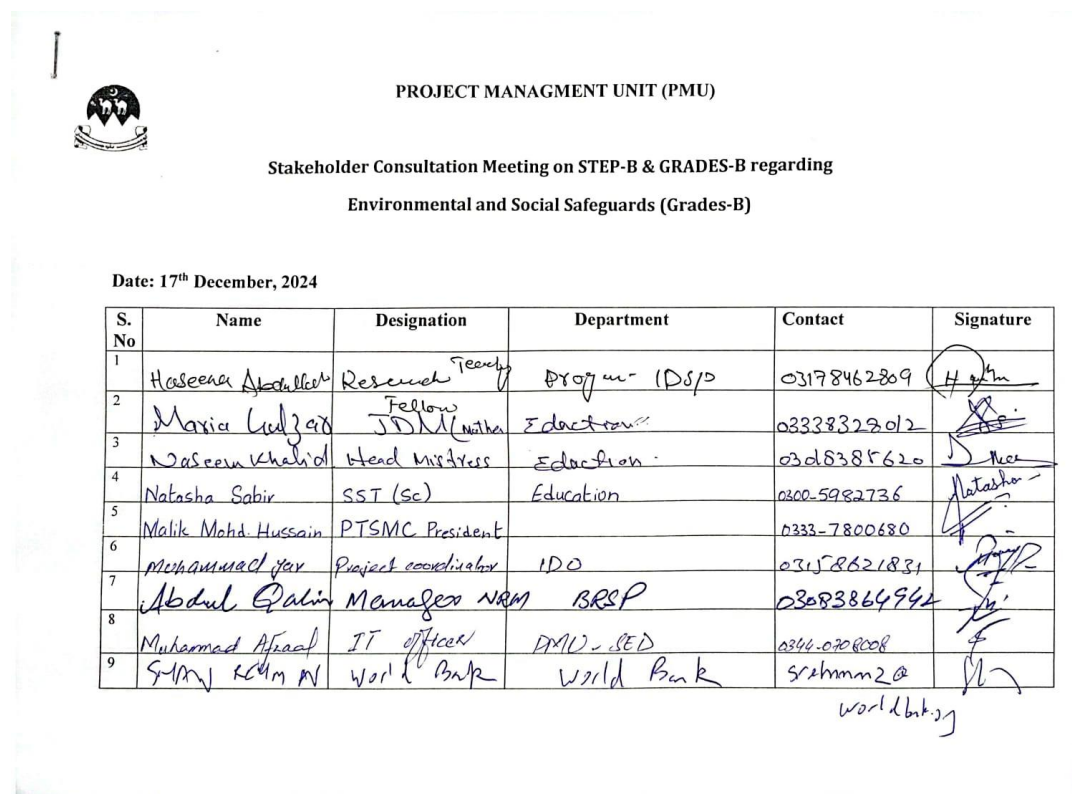 PROJECT MANAGMENT UNIT (PMU)
Stakeholder Consultation Meeting on STEP-B & GRADES-B regarding
Environmental and Social Safeguards (Grades-B)
Date: 17th December, 2024
S. No Name Designation Department Contact Signature
1 Haseena Research 03178462809
2 Maria Gulzar Fellow JDM 03338328012
3 Naseem Khalid Head Mistress Edaction
4 Natasha Sabir SST (Sc) Education 0300-5982736 Natasha
5 Malik Mohd. Hussain PTSMC President 0333-7800680
6 Muhammad Yar Project coordinator IDO 03158621831
7 Abdul Manager NRM BRSP 03083864942
8 Muhammad IT officer PMU-SED 0344-0708008
9 World Bank World Bank